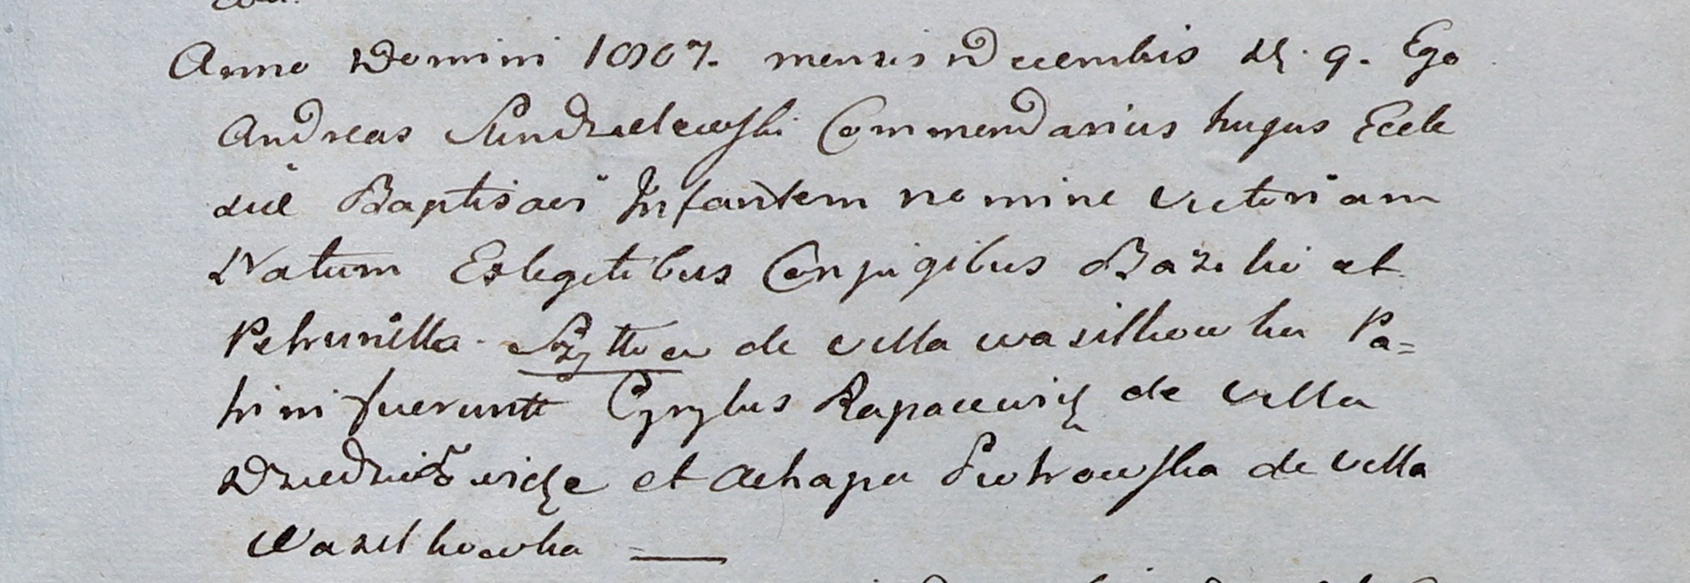 Anno Domini 1807. mensis Decembis D. 9. Ego
Andreas Sendzielewski Commendarius hugus Eccle
siæ Baptisavi Infantem nomine Victoriam
Natum Exlegitibus Conjugibus Bazilii et
Petrunilla Szyttow de villa wasilkowka Pa=
trini fuerunt Cyrylus Rapacewicz de villa
et Achapa Piotrowska de villa
Wasilkowka —